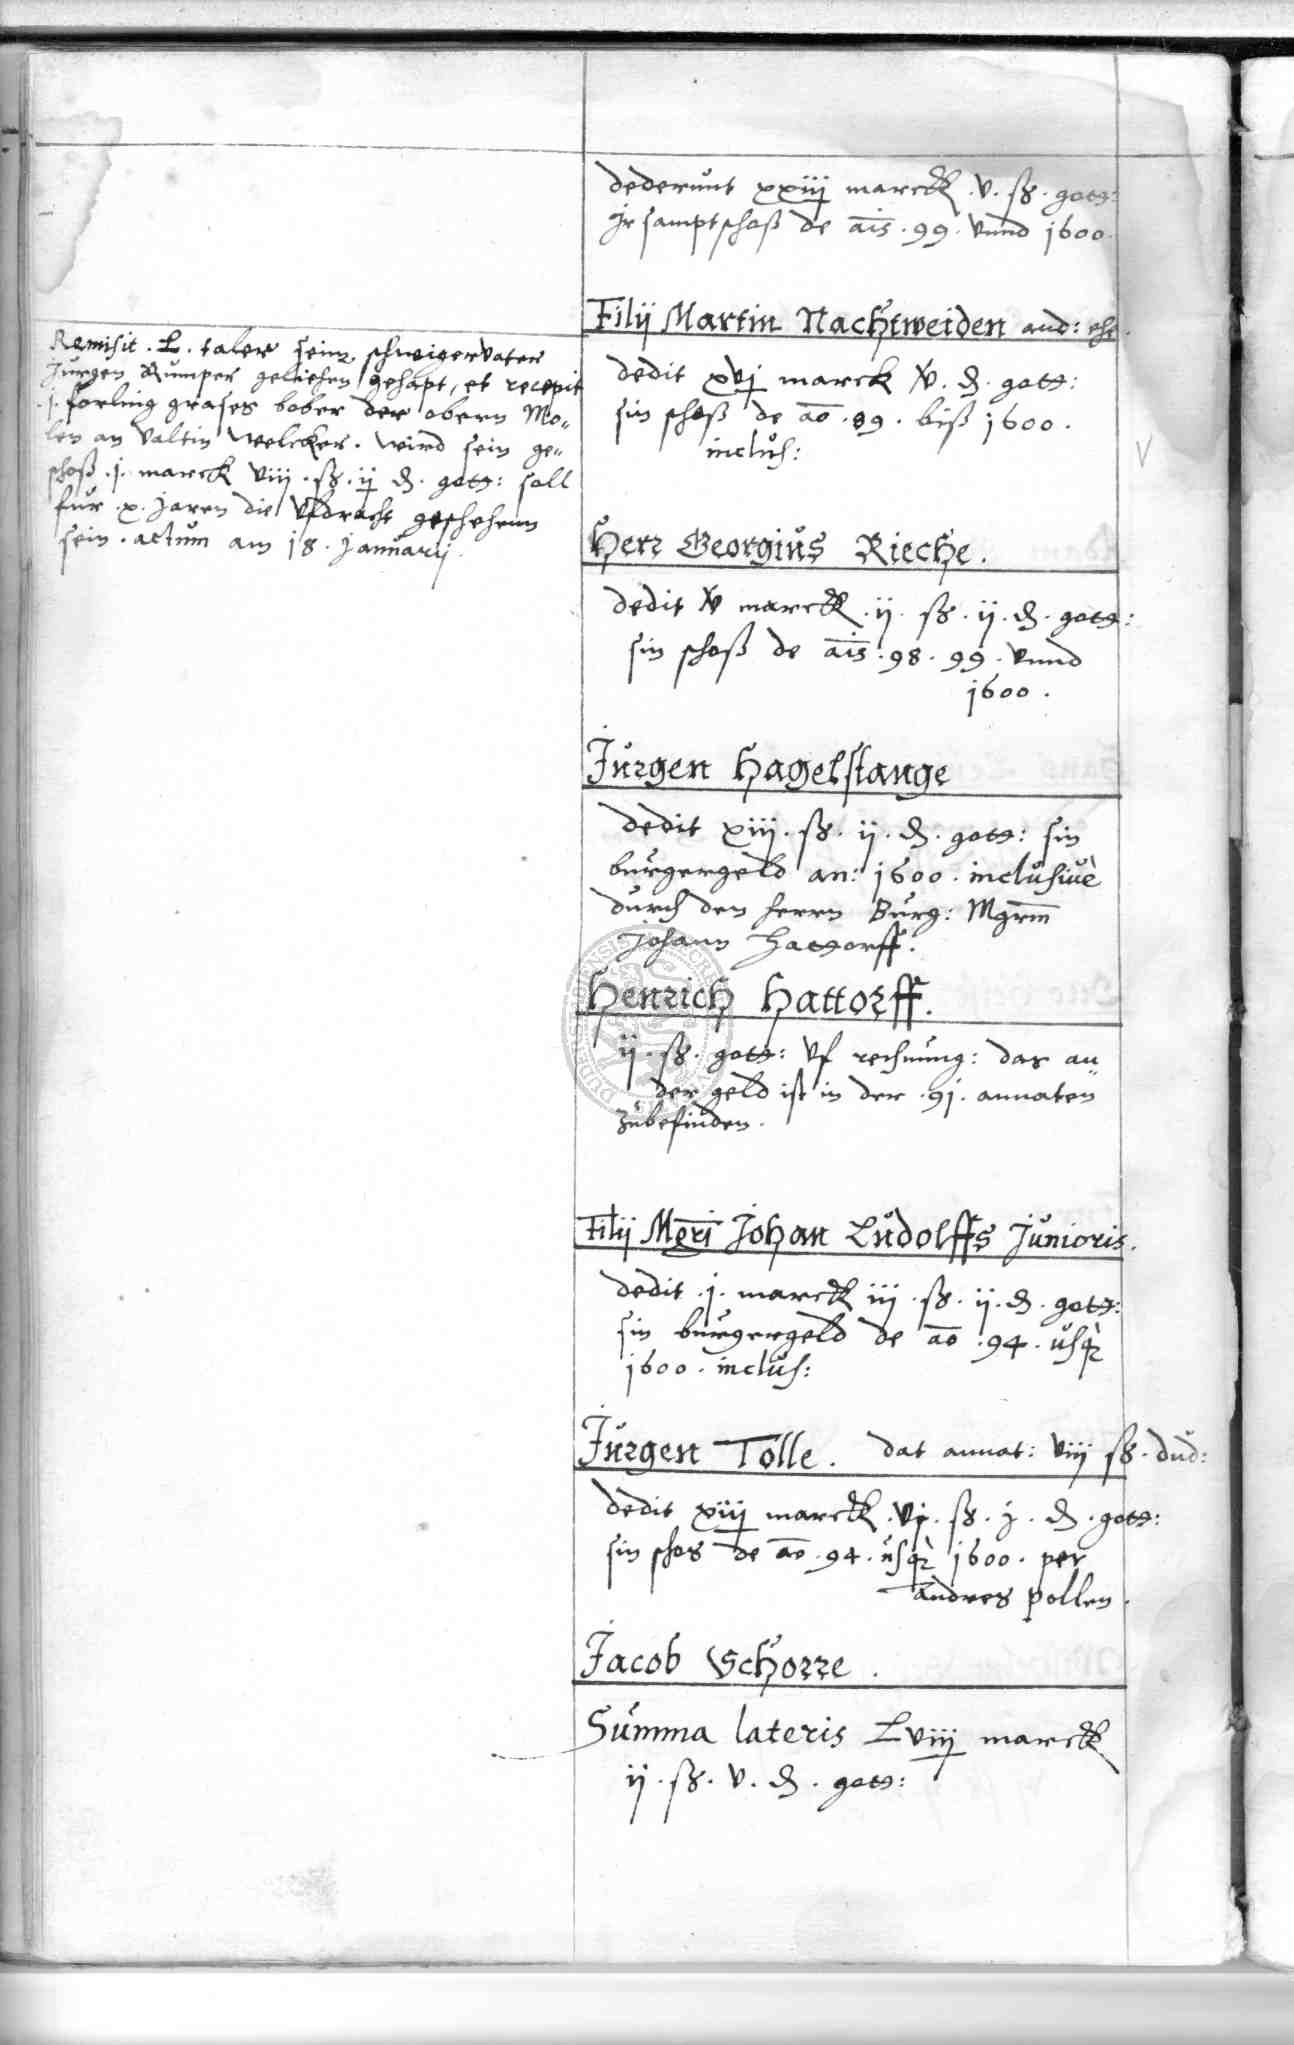 dederunt xxiij marck . v . ß . gott:
Jr samptschoß de ais . 99 . vnnd 1600.
Filij Martin Nachtweiden and: ehe.
Remisit . L . taler seinz schweigervater
Jurgen Rumper geliehen gehapt, et recepit
.j. forling grases bober der obern Mo„
len an Valtin Welcker . wird sein ge„
schoß .j. marck viij . ß . ij ₰ . gott: soll
fur .x. Jaren die vfdracht geschehenn
sein . actum am 18 . Januarij.
dedit xvj marck v . ₰ . gott:
sin schoß de ao . 89 . biß 1600 .
inclus:
Herr Georgius Rieche .
dedit v marck . ij . ß . ij . ₰ . gott:
sin schoß de ais . 98 . 99 . vnnd
1600 .
Jurgen Hagelstange
dedit xiij . ß . ij . ₰ . gott: sin
burgergeld an: 1600 . inclusiue
durch den herrn Burg: Mgrm
Johann Hattorff.
Henrich Hattorff.
ij . ß . gott: vf rechnung: das an„
der geld ist in der .91. annaten
zubefinden .
Filij Mgri Johan Ludolffs Junioris.
dedit .j. marck iij . ß . ij . ₰ . gott:
sin burgergeld de ao . 94 . usq
1600 . inclus:
Jurgen Tolle . dat annat: viij ß . dud:
dedit xiij marck . vj . ß . j . ₰ . gott:
sin schos de ao . 94 . usq 1600 . per
andres pollen .
Jacob Schorre .
Summa lateris Lviij marck
ij . ß . v . ₰ . gott: